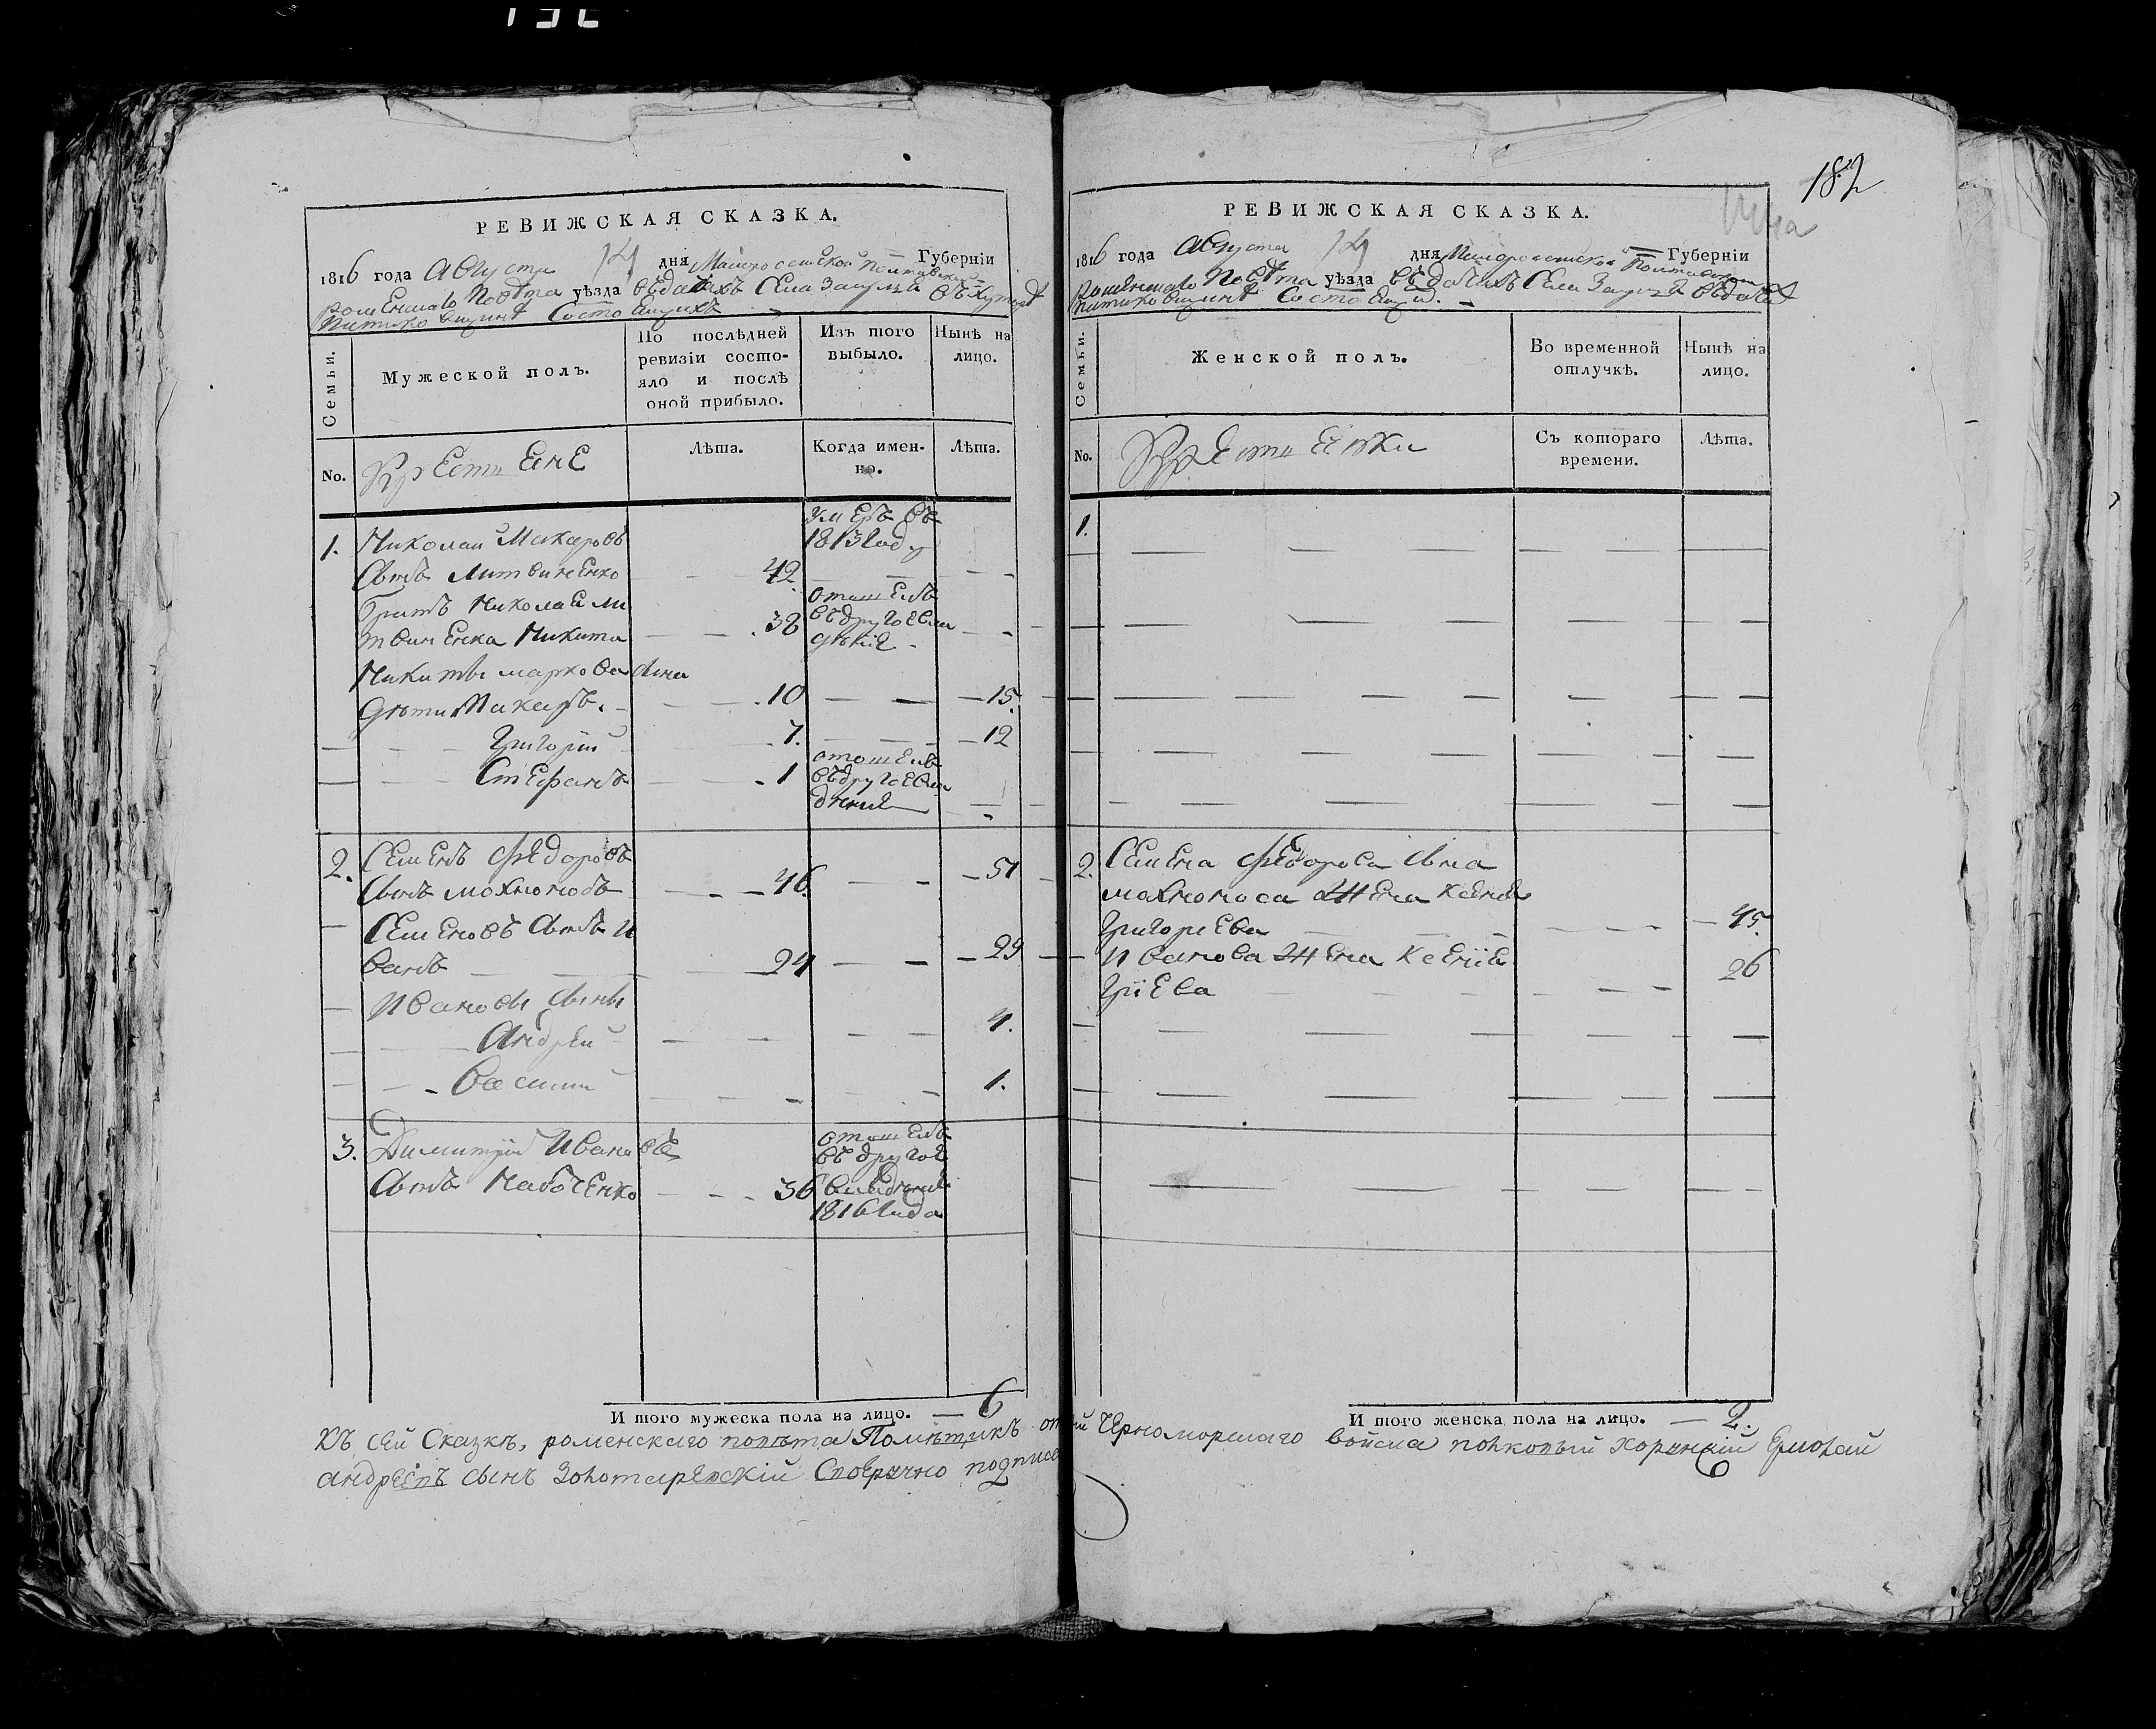 182
РЕВИЖСКАЯ СКАЗКА.
1816 года Августа 14 дня Малоросейской Полтавской Губерніи
роменскаго Повѣта уѣзда въдачахъ Села Засулья въ хуторѣ
Состоящихъ
Семьи.
Мужеской полъ.
По послѣдней ревизіи состо-
яло и послѣ
оной прибыло.
Изъ того выбыло.
Нынѣ на лицо.
No.
Крестьяне
Лѣта.
Когда имен-
но.
Лѣта.
1. Николай Макаровъ умеръ въ
1813 году
Сынъ Литвиненко 42
Братъ Николая Ли отошелъ
твиненка Никита 38 въдругое вла
дѣніе
Никиты маркова сына
дѣти Макаръ. 10 15.
Григорій 7. 12
Стефанъ 1 отошелъ
въдругое вла
дѣніе
2. Семенъ Федоровъ
Сынъ мохноносъ 46. 51
Семеновъ Сынъ И
ванъ 24 29
Ивановы Сыны
Андрей 4.
Василий 1.
3. Димитрій Ивановъ отошелъ
въ другое
Сынъ Набоченко 36 владѣніе
1816 года
И того мужеска пола на лицо. 6
РЕВИЖСКАЯ СКАЗКА.
1816 года Августа 14 дня Малоросейской Полтавской Губерніи
роменскаго Повѣта уѣзда въдачахъ Села Засулья
Состоящи
Семьи.
Женской полъ.
Во временной отлучкѣ.
Нынѣ на лицо.
No.
Крестьянки
Съ котораго времени.
Лѣта.
1.
2. Семена Федорова Сына
мохноноса Жена
Григорьева 45.
Иванова Жена 26
И того женска пола на лицо. 2.
Къ сей Сказкѣ, роменскаго повѣта Помѣщикъ Черноморскаго войска полковый хорунжій Ермолай
андреевъ сынъ Золотаревскій Своеручно подписа